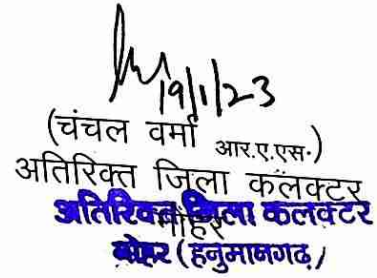 19/1/23
(चंचल वर्मा आर.ए.एस.)
अतिरिक्त जिला कलक्टर
अतिरिक्त जिला कलक्टर
नोहर
नोहर (हनुमानगढ)